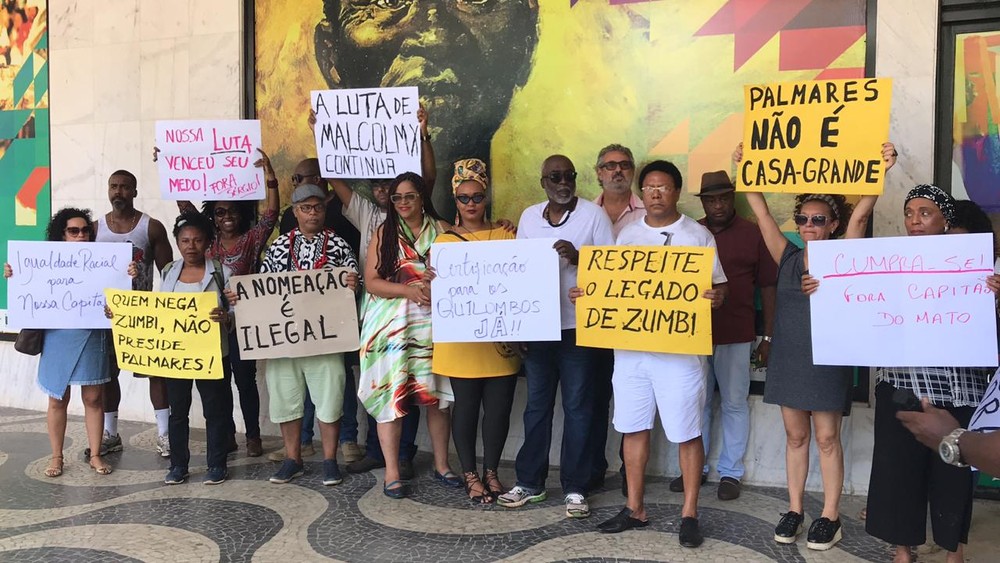 NOSSA LUTA
VENCEU SEU
MEDO! FORA
SÉRGIO!
A LUTA DE
MALCOLMX
CONTINUA
PALMARES
NÃO É
CASA-GRANDE
Igualdade Racial
para
Nossa Capital
QUEM NEGA
ZUMBI, NÃO
PRESIDE
PALMARES!
A NOMEAÇÃO
É
ILEGAL
Certificação
para os
QUILOMBOS
JÁ!!
RESPEITE
O LEGADO
DE ZUMBI
CUMPRA-SE!
FORA CAPITÃO
DO MATO